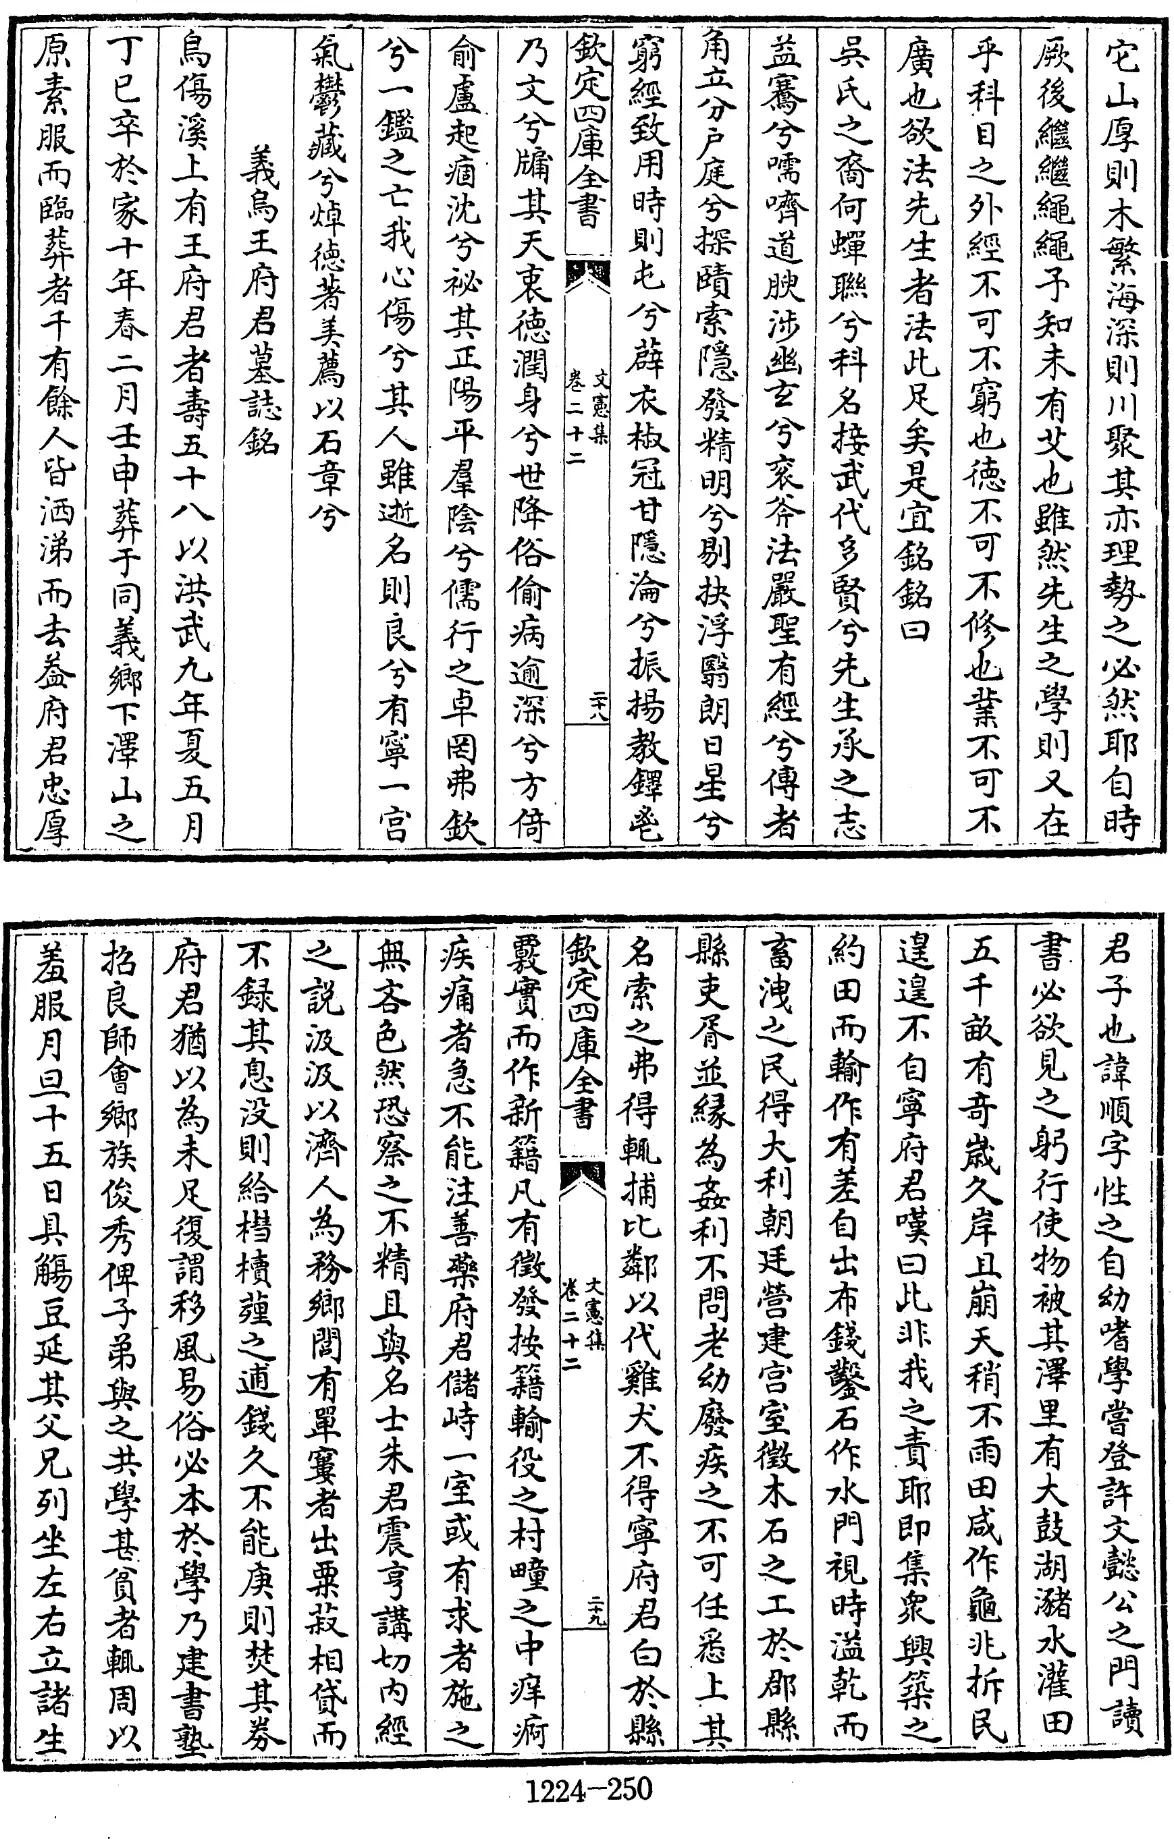 它山厚則木繁海深則川聚其亦理勢之必然耶自時
厥後繼繼繩繩予知未有艾也雖然先生之學則又在
乎科目之外經不可不窮也德不可不修也業不可不
廣也欲法先生者法此足矣是宜銘銘曰
吳氏之裔何蟬聯兮科名接武代多賢兮先生承之志
益騫兮嚅嚌道腴涉幽玄兮袞斧法嚴聖有經兮傳者
角立分户庭兮探賾索隱發精明兮剔抉浮翳朗日星兮
窮經致用時則屯兮薜衣椒冠甘隱淪兮振揚教鐸鬯
欽定四庫全書
文憲集
卷二十二
二十八
乃文兮牖其天衷德潤身兮世降俗偷病逾深兮方倚
俞盧起痼沈兮祕其正陽平羣陰兮儒行之卓罔弗欽
兮一鑑之亡我心傷兮其人雖逝名則良兮有寧一宫
氣鬱藏兮焯德著美薦以石章兮
義烏王府君墓誌銘
烏傷溪上有王府君者壽五十八以洪武九年夏五月
丁巳卒於家十年春二月壬申葬于同義鄉下澤山之
原素服而臨葬者千有餘人皆洒涕而去葢府君忠厚
君子也諱順字性之自幼嗜學嘗登許文懿公之門讀
書必欲見之躬行使物被其澤里有大鼓湖瀦水灌田
五千畝有奇歲久岸且崩天稍不雨田咸作龜兆拆民
遑遑不自寧府君嘆曰此非我之責耶即集衆興築之
約田而輸作有差自出布錢鑿石作水門視時溢乾而
畜洩之民得大利朝廷營建宫室徵木石之工於郡縣
縣吏胥並緣為姦利不問老幼廢疾之不可任悉上其
名索之弗得輒捕比鄰以代雞犬不得寧府君白於縣
欽定四庫全書
文憲集
卷二十二
二十九
覈實而作新籍凡有徵發按籍輸役之村疃之中痒疴
疾痛者急不能注善藥府君儲峙一室或有求者施之
無吝色然恐察之不精且與名士朱君震亨講切内經
之説汲汲以濟人為務鄉閭有單窶者出粟菽相貸而
不録其息没則給槥櫝薶之逋錢久不能庚則焚其券
府君猶以為未足復謂移風易俗必本於學乃建書塾
招良師會鄉族俊秀俾子弟與之共學甚貧者輒周以
羞服月旦十五日具觴豆延其父兄列坐左右立諸生
1224-250